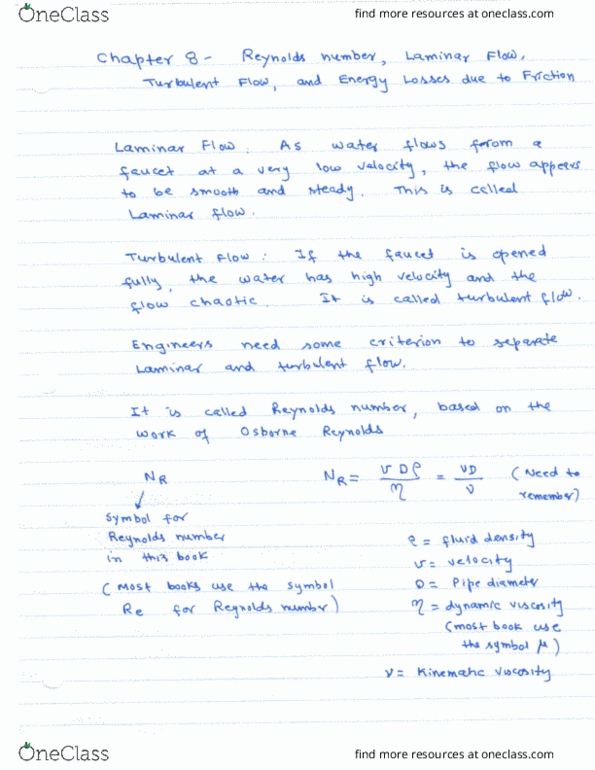 OneClass
find more resources at oneclass.com
Chapter 8 - Reynolds number, Laminar Flow,
Turbulent Flow, and Energy Losses due to Friction
Laminar Flow. As water flows from a
faucet at a very low velocity, the flow appears
to be smooth and steady. This is called
Laminar flow.
Turbulent Flow: If the faucet is opened
fully, the water has high velocity and the
flow chaotic. It is called turbulent flow.
Engineers need some criterion to separate
Laminar and turbulent flow.
It is called Reynolds number, based on the
work of Osborne Reynolds
NR NR = υDρ/η = υD/ν (Need to
remember)
Symbol for
Reynolds number
in this book
(Most books use the symbol
Re for Reynolds number)
ρ = fluid density
υ = velocity
D = Pipe diameter
η = dynamic viscosity
(most book use
the symbol μ)
ν = Kinematic viscosity
OneClass
find more resources at oneclass.com